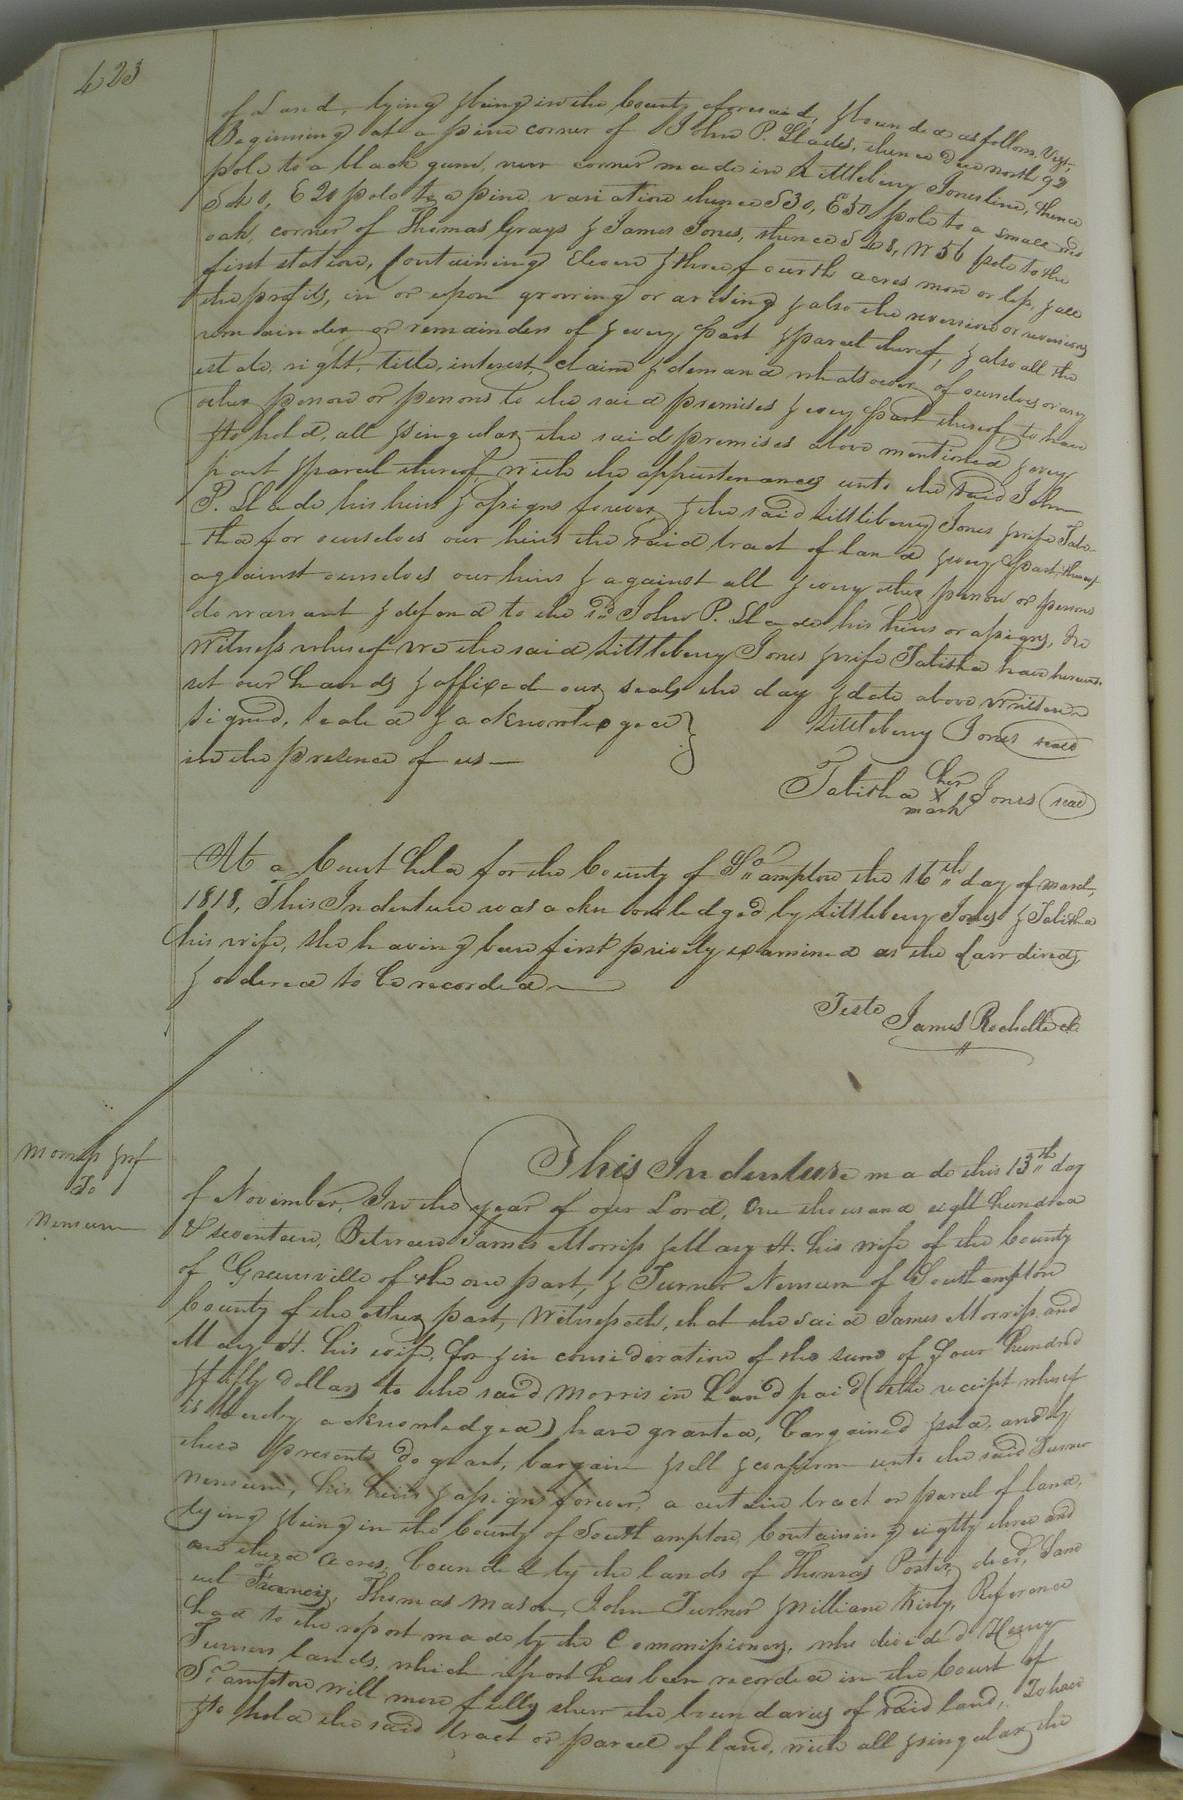 423
of Land, lying & being in the County aforesaid, & bounded as follows, Viz,
Beginning at a pine corner of John P. Slades, thence due north 92
pole to a black gum, new corner made in Littlebury Jones line, thence
S 40, E 20 pole to a pine variation thence S 30, E 50, pole to a small red
oak, corner of Thomas Grays & James Jones, thence S 28, W 56 pole to the
first station, Containing Eleven & three fourth acres more or less, & all
the profits, in or upon growing or arising & also the reversion or reversions
remainder or remainders of & every part & parcel thereof, & also all the
estate, right, title, interest, claim & demand whatsoever of ourselves or any
other person or persons to the said premises & every part thereof, to have
& to hold, all & singular the said premises above mentioned & every
part & parcel thereof with the appurtenances unto the said John
P. Slade his heirs & assigns forever, & the said Littlebury Jones & wife Tabi-
tha for ourselves our heirs the said tract of land & every part thereof
against ourselves our heirs & against all & every other person or persons
do warrant & defend to the sd. John P. Slade his heirs or assigns, In
Witness whereof we the said Littlebury Jones & wife Tabitha have hereunto
set our hands & affixed our seals the day & date above written
Signed, Sealed & acknowledged }
in the presence of us —
Littlebury Jones seal
Tabitha her X mark Jones seal
At a Court held for the County of So,,ampton the 16th,, day of March,
1818, This Indenture was acknowledged by Littlebury Jones & Tabitha
his wife, she having been first privily examined as the Law directs,
& ordered to be recorded
Teste
James Rochelle Cl.
Morriss & wf
To
Newsum
This Indenture made this 13th,, day
of November, In the year of our Lord, One thousand eight hundred
& seventeen, Between James Morriss & Mary H. his wife of the County
of Greensville of the one part, & Turner Newsum of Southampton
County of the other part, Witnesseth, that the said James Morriss and
Mary H. his wife, for & in consideration of the sum of Four hundred
& fifty dollars to the said Morris in hand paid (the receipt whereof
is hereby acknowledged) have granted, bargained & sold, and by
these presents do grant, bargain & sell & confirm unto the said Turner
Newsum, his heirs & assigns forever, a certain tract or parcel of land,
lying & being in the County of Southampton Containing eighty three and
one third acres, bounded by the lands of Thomas Porter, decd, Sam
uel Francis, Thomas Mason, John Turner & William Kirby, Reference
had to the report made by the Commissioners, who divided Henry
Turners lands, which report has been recorded in the Court of
So.ampton will more fully shew the boundaries of said land, To have
& to hold the said tract or parcel of land, with all & singular the